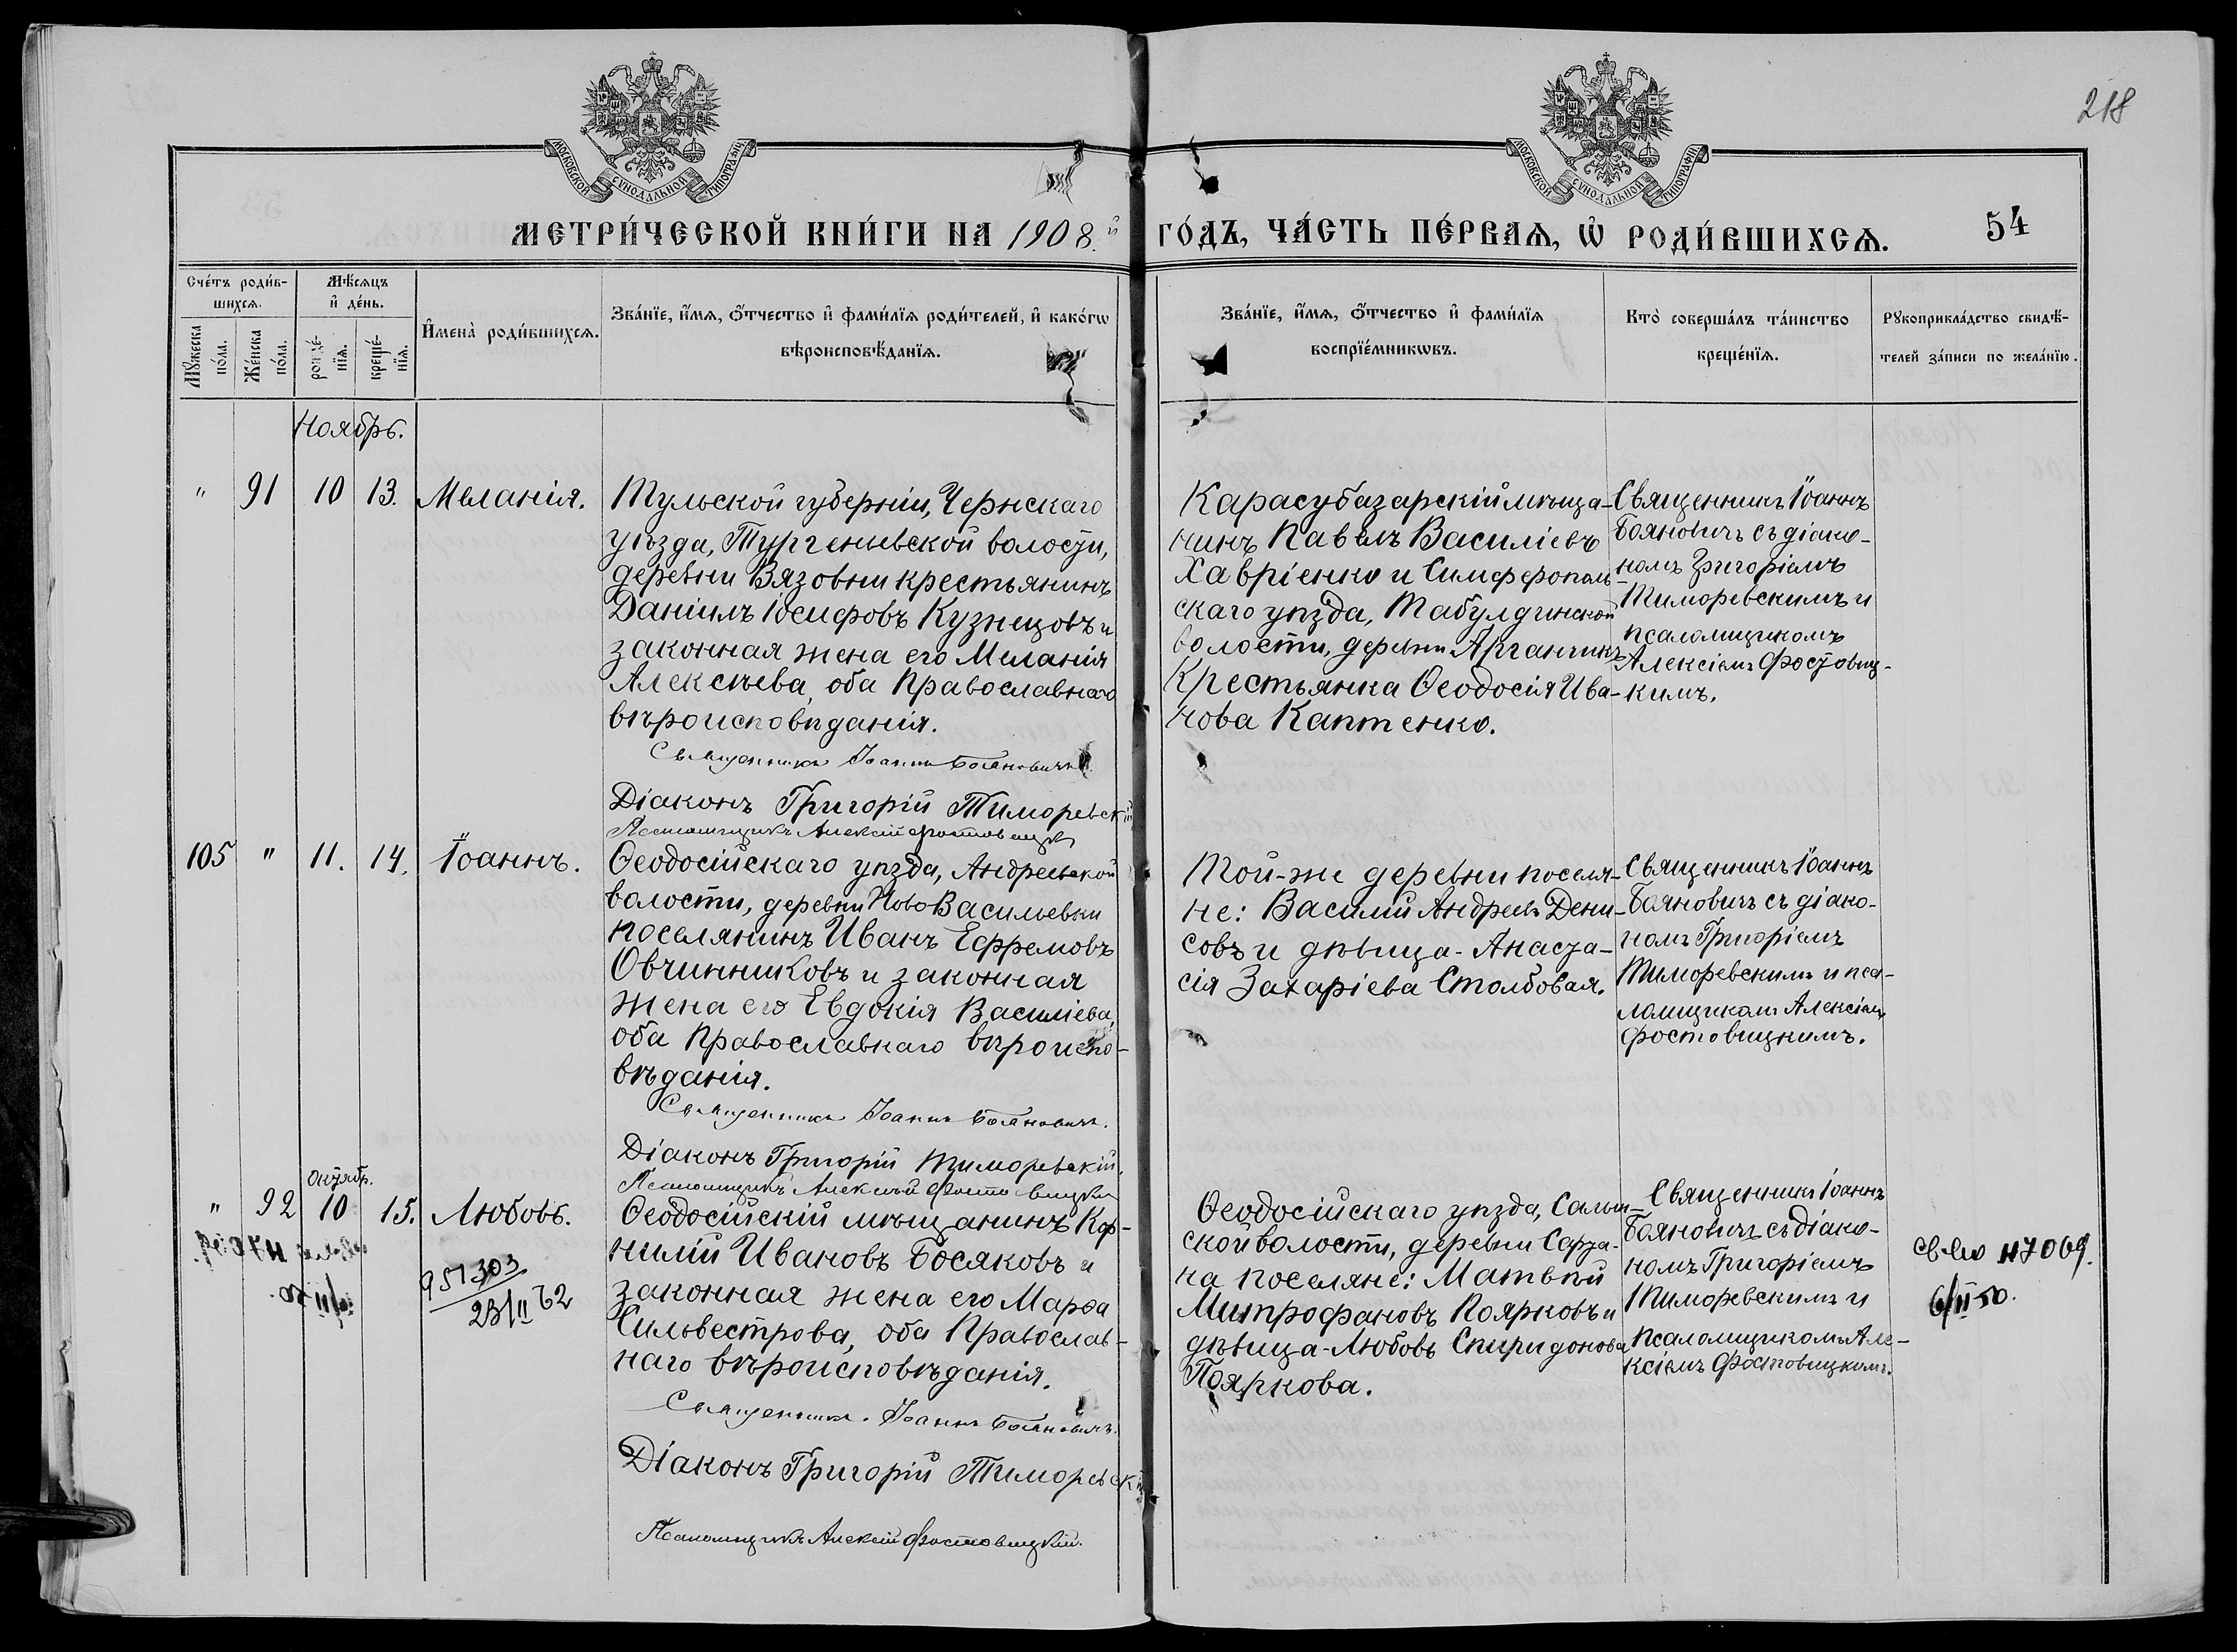 218
МОСКОВСКОЙ СѴНОДАЛЬНОЙ ТИПОГРАФІИ
МОСКОВСКОЙ СѴНОДАЛЬНОЙ ТИПОГРАФІИ
МЕТРИ́ЧЕСКОЙ КНИ́ГИ НА 1908.й ГО́ДЪ, ЧА́СТЬ ПЕ́РВАѦ, Ѡ҆ РОДИ́ВШИХСѦ. 54
Сче́тъ роди́в-
шихсѧ.
Мѣ́сѧцъ
и҆ де́нь.
Мꙋ́жеска
по́ла.
Же́нска
по́ла.
рожде́-
нїѧ.
креще́-
нїѧ.
И҆мена̀ роди́вшихсѧ.
Зва́нїе, и҆́мѧ, ѻ҆́тчество и҆ фами́лїѧ роди́телей, и҆ како́гѡ
вѣроисповѣ́данїѧ.
Зва́нїе, и҆́мѧ, ѻ҆́тчество и҆ фами́лїѧ
воспрїе́мникѡвъ.
Кто̀ соверша́лъ та́инство
креще́нїѧ.
Рꙋкоприкла́дство свидѣ́-
телей за́писи по жела́нїю.
Ноябрь.
" 91 10 13. Меланія.
Тульской губерніи, Чернскаго
уѣзда, Тургеневской волости,
деревни Вязовни крестьянинъ
Даніилъ Іосифовъ Кузнецовъ и
законная жена его Меланія
Алексѣева, оба Православнаго
вѣроисповѣданія.
Священникъ Іоаннъ Бояновичъ.
Діаконъ Григорій Тиморевскій
Псаломщикъ Алексій Фостовицкій
Карасубазарскій мѣща-
нинъ Павелъ Василіевъ
Хавріенко и Симферополь-
скаго уѣзда, Табулдинской
волости, деревни Аргинчикъ
Крестьянка Ѳеодосія Ива-
нова Каптенко.
Священникъ Іоаннъ
Бояновичъ съ діако-
номъ Григоріемъ
Тиморевскимъ и
псаломщикомъ
Алексіемъ Фостовиц-
кимъ.
105 " 11. 14. Іоаннъ.
Ѳеодосійскаго уѣзда, Андреевской
волости, деревни Ново Васильевки
поселянинъ Иванъ Ефремовъ
Овчинниковъ и законная
жена его Евдокія Василіева,
оба Православнаго вѣроиспо-
вѣданія.
Священникъ Іоаннъ Бояновичъ.
Діаконъ Григорій Тиморевскій.
Псаломщикъ Алексій Фостовицкій
Той-же деревни поселя-
не: Василій Андреевъ Дени-
совъ и дѣвица-Анаста-
сія Захаріева Столбовая.
Священникъ Іоаннъ
Бояновичъ съ діако-
номъ Григоріемъ
Тиморевскимъ и пса-
ломщикомъ Алексіемъ
Фостовицкимъ.
Октябр.
" 92 10 15. Любовь.
951303
23/II 62
Ѳеодосійскій мѣщанинъ Кор-
нилій Ивановъ Босяковъ и
законная жена его Марѳа
Сильвестрова, оба Православ-
наго вѣроисповѣданія.
Священникъ Іоаннъ Бояновичъ.
Діаконъ Григорій Тиморевскій
Псаломщикъ Алексій Фостовицкій.
Ѳеодосійскаго уѣзда, Салын-
ской волости, деревни Сарта-
на поселяне: Матвѣй
Митрофановъ Поярковъ и
дѣвица-Любовь Спиридонова
Пояркова.
Священникъ Іоаннъ
Бояновичъ съ діако-
номъ Григоріемъ
Тиморевскимъ и
псаломщикомъ Але-
ксіемъ Фостовицкимъ.
св-во 117069.
6/II 50.